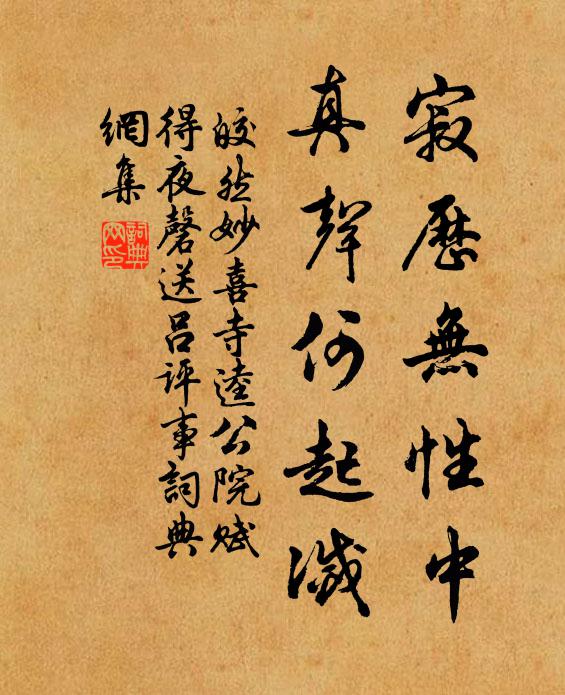 寂歷無性中
真聲何起滅
皎然妙喜寺逵公院賦
得夜磬送呂評事詞典
網集
詞典
网印